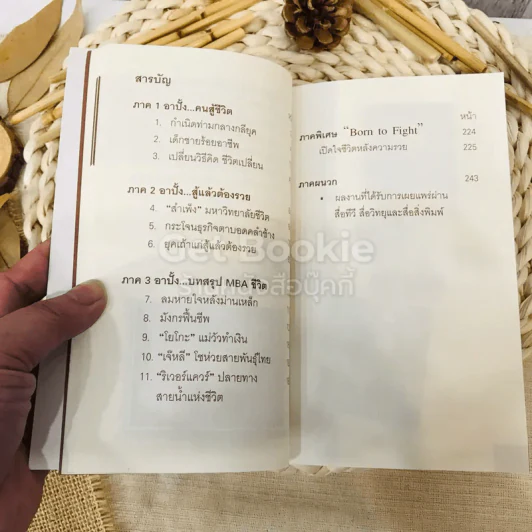 สารบัญ
ภาค 1 อาปั้ง...คนสู้ชีวิต
1. กำเนิดท่ามกลางกลียุค
2. เด็กชายร้อยอาชีพ
3. เปลี่ยนวิธีคิด ชีวิตเปลี่ยน
ภาค 2 อาปั้ง...สู้แล้วต้องรวย
4. “สำเพ็ง” มหาวิทยาลัยชีวิต
5. กระโจนธุรกิจตาบอดคลำช้าง
6. ยุคเถ้าแก่สู้แล้วต้องรวย
ภาค 3 อาปั้ง...บทสรุป MBA ชีวิต
7. ลมหายใจหลังม่านเหล็ก
8. มังกรฟื้นชีพ
9. “โยโกะ” แม่วัวทำเงิน
10. “เจ๊หลี” โชห่วยสายพันธุ์ไทย
11. “ริเวอร์แควร์” ปลายทาง
สายน้ำแห่งชีวิต
หน้า
ภาคพิเศษ “Born to Fight” 224
เปิดใจชีวิตหลังความรวย 225
ภาคผนวก 243
• ผลงานที่ได้รับการเผยแพร่ผ่าน
สื่อทีวี สื่อวิทยุและสื่อสิ่งพิมพ์
Get Bookie
ร้านหนังสือบุ๊คกี้